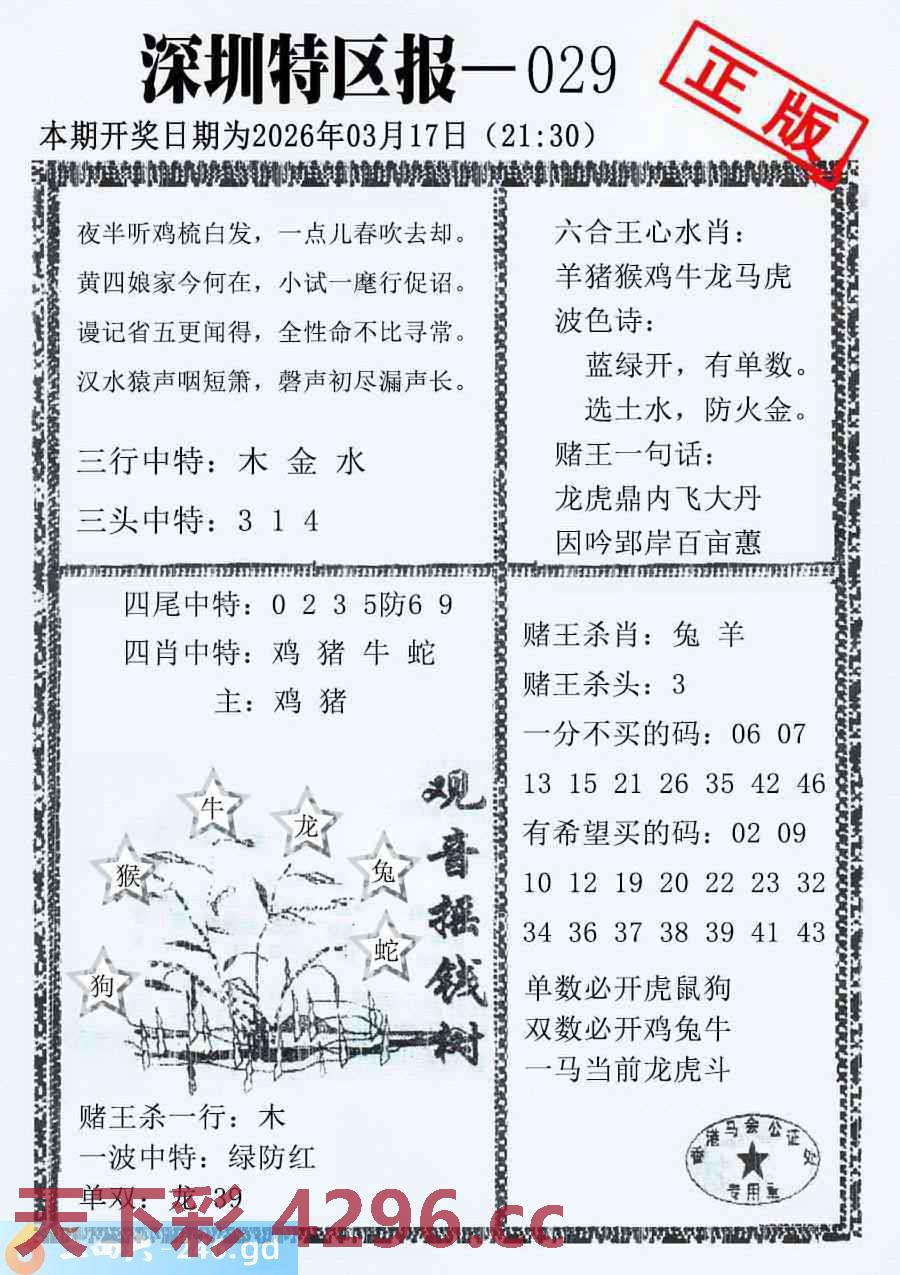 深圳特区报—029
正版
本期开奖日期为2026年03月17日（21:30）
夜半听鸡梳白发，一点儿春吹去却。
黄四娘家今何在，小试一麾行促诏。
谩记省五更闻得，全性命不比寻常。
汉水猿声咽短箫，磬声初尽漏声长。
三行中特：木 金 水
三头中特：3 1 4
六合王心水肖：
羊猪猴鸡牛龙马虎
波色诗：
蓝绿开，有单数。
选土水，防火金。
赌王一句话：
龙虎鼎内飞大丹
因吟郢岸百亩蕙
四尾中特：0 2 3 5防6 9
四肖中特：鸡 猪 牛 蛇
主：鸡 猪
观音摇钱树
牛
龙
猴
兔
蛇
狗
赌王杀一行：木
一波中特：绿防红
单双：龙 39
赌王杀肖：兔 羊
赌王杀头：3
一分不买的码：06 07
13 15 21 26 35 42 46
有希望买的码：02 09
10 12 19 20 22 23 32
34 36 37 38 39 41 43
单数必开虎鼠狗
双数必开鸡兔牛
一马当前龙虎斗
香港马会公证处
专用章
天下彩 4296.cc